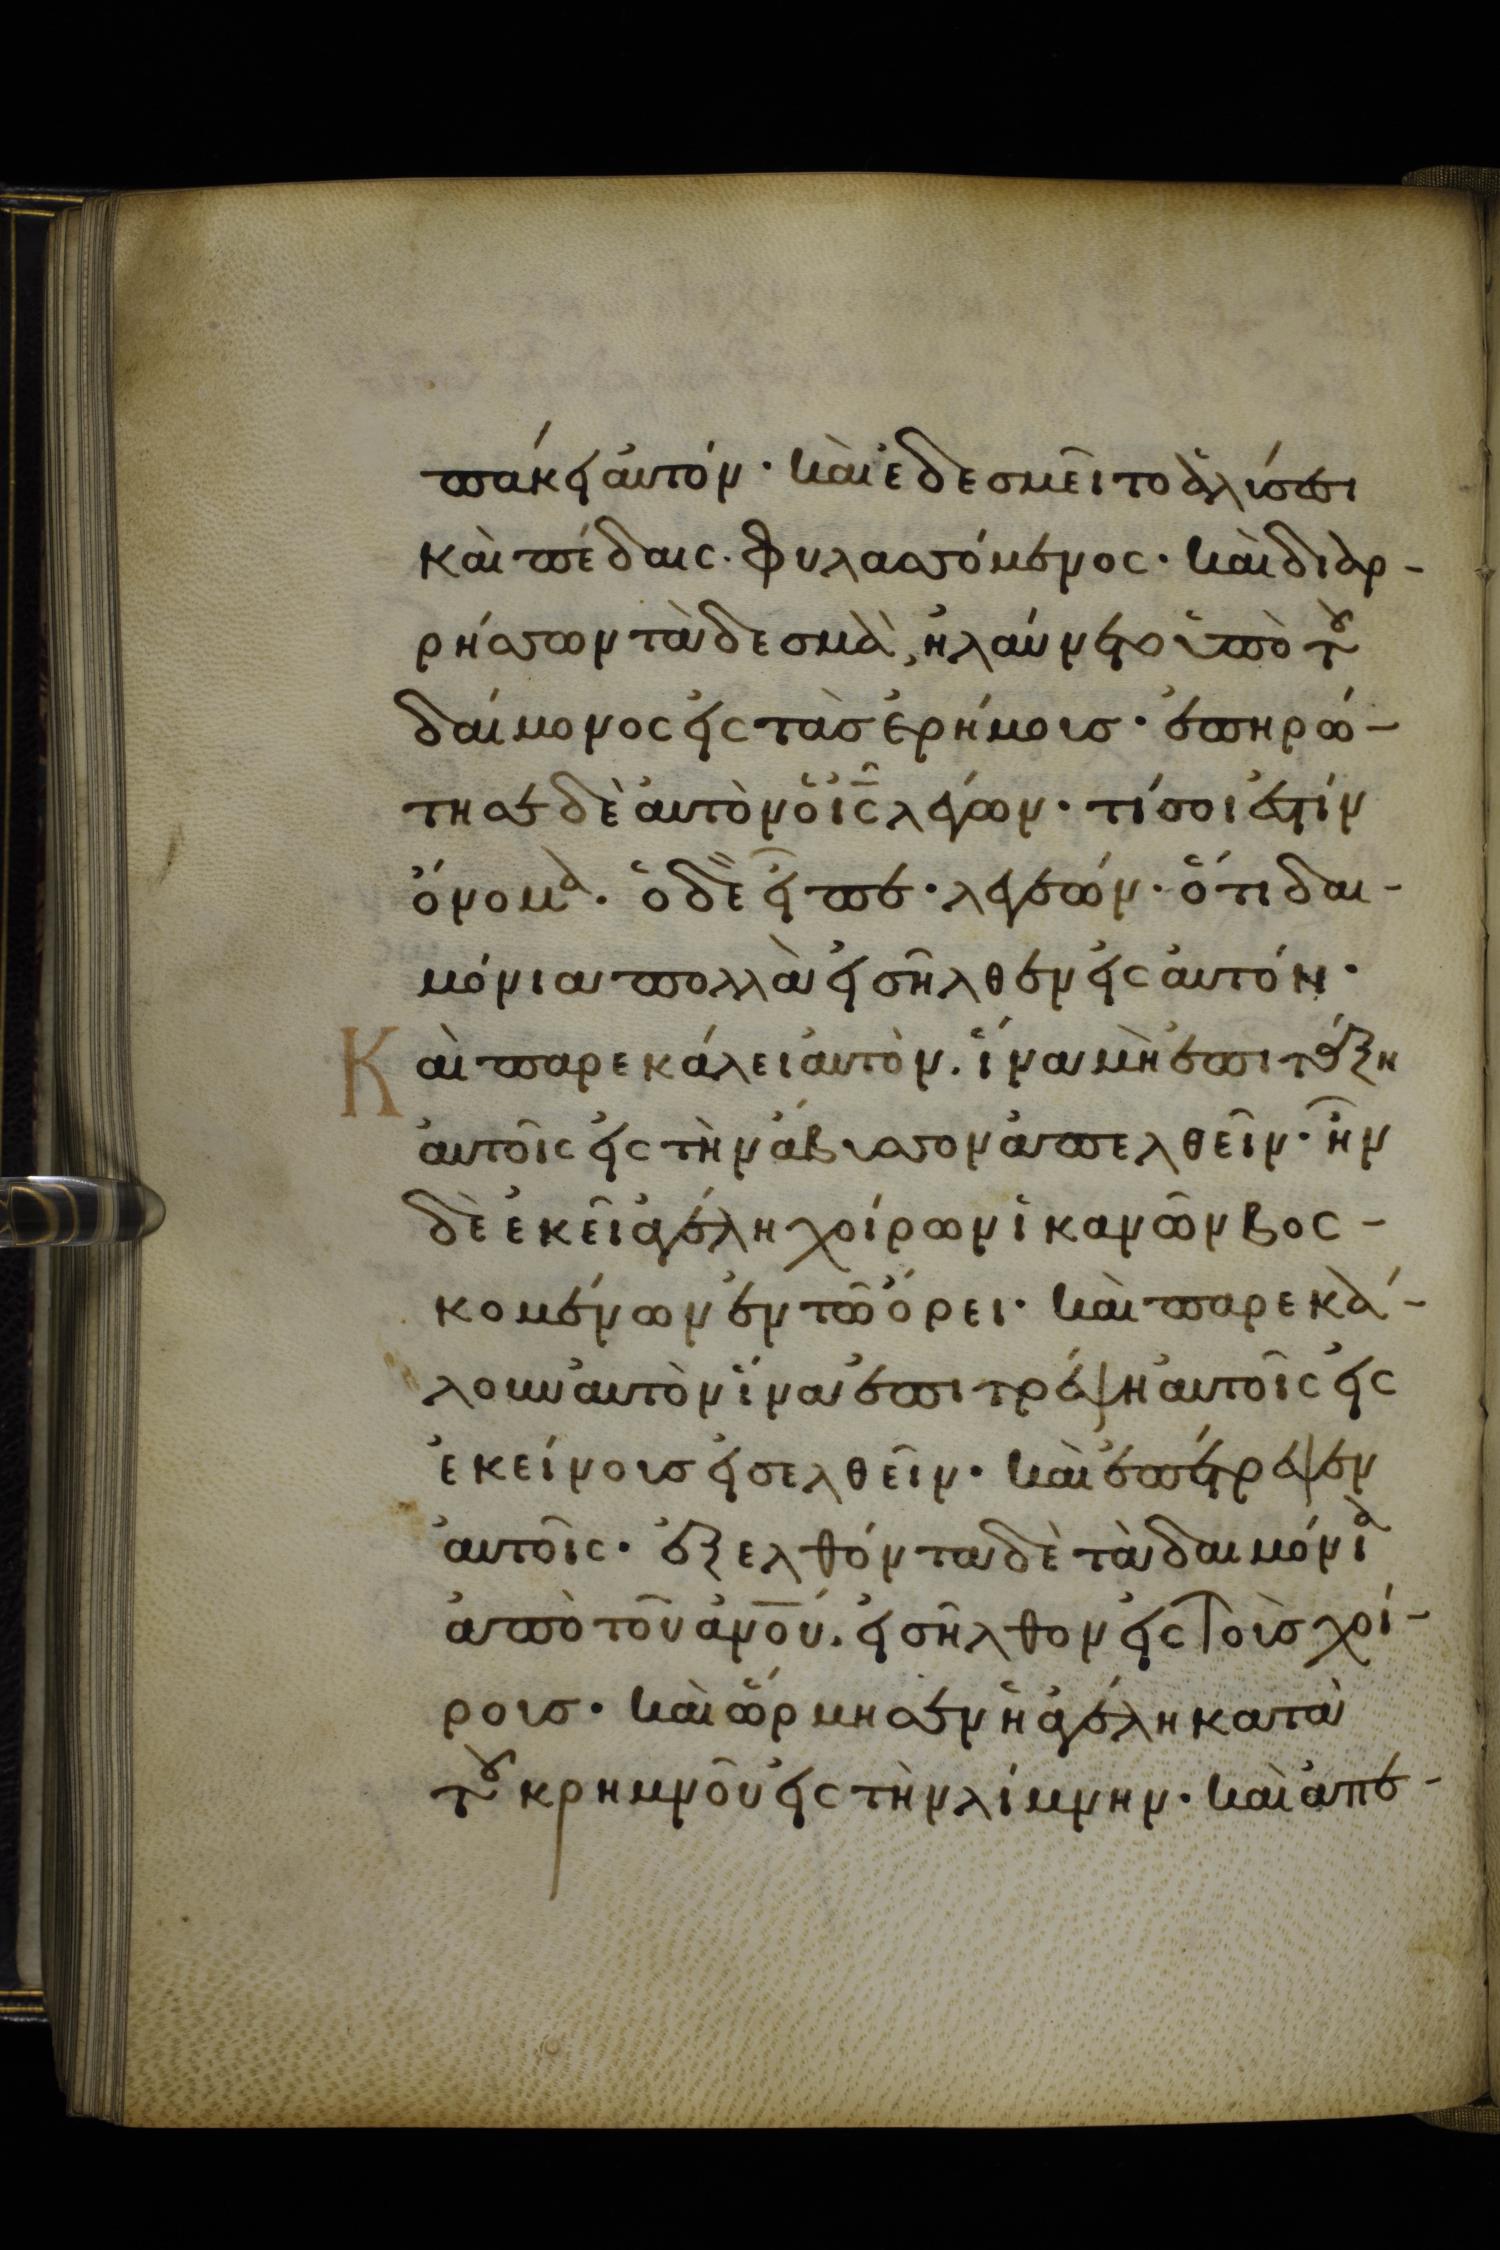 πάκει αὐτόν· καὶ ἐδεσμεῖτο ἁλύσεσι
καὶ πέδαις· φυλασσόμενος· καὶ διαρ-
ρήσσων τὰ δεσμὰ, ἠλαύνετο ὑπὸ τοῦ
δαίμονος εἰς τὰς ἐρήμους· ἐπηρώ-
τησε δὲ αὐτὸν ὁ ις λέγων· τί σοι ἐστὶν
ὄνομα· ὁ δὲ εἶπε· λεγεών· ὅτι δαι-
μόνια πολλὰ εἰσῆλθεν εἰς αὐτόν·
Καὶ παρεκάλει αὐτὸν. ἵνα μὴ ἐπιτάξη
αὐτοῖς εἰς τὴν ἄβυσσον ἀπελθεῖν· ἦν
δὲ ἐκεῖ ἀγέλη χοίρων ἱκανῶν βοσ-
κομένων ἐν τῶ ὄρει· καὶ παρεκά-
λουν αὐτὸν ἵνα ἐπιτρέψη αὐτοῖς εἰς
ἐκείνους εἰσελθεῖν· καὶ ἐπέτρεψεν
αὐτοῖς· ἐξελθόντα δὲ τὰ δαιμόνια
ἀπὸ τοῦ ανου. εἰσῆλθον εἰς τοὺς χοί-
ρους· καὶ ὥρμησεν ἡ ἀγέλη κατὰ
τοῦ κρημνοῦ εἰς τὴν λίμνην· καὶ ἀπε-